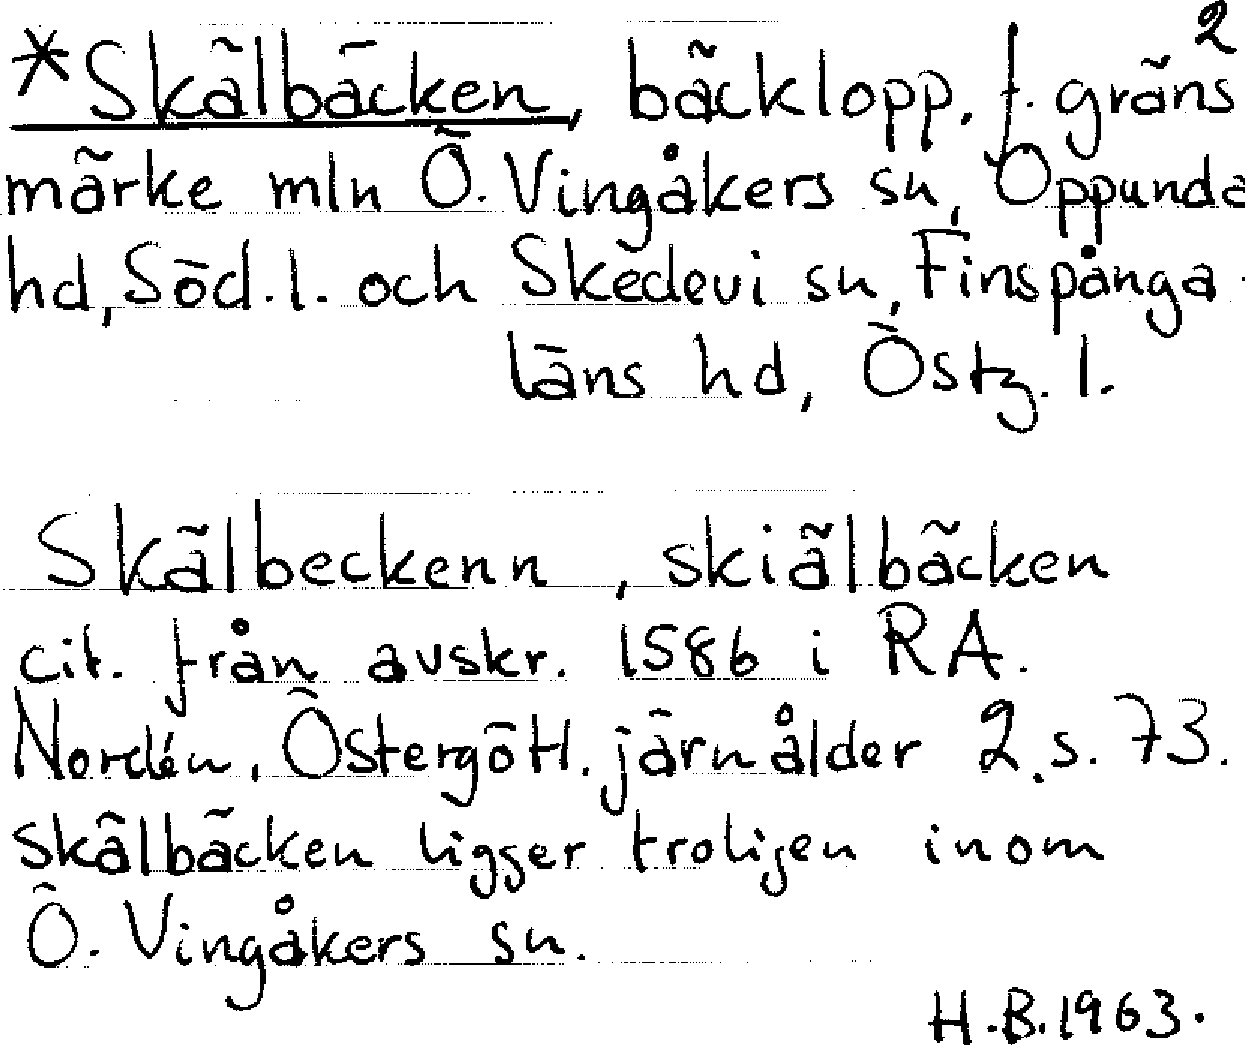 2
*Skälbäcken, bäcklopp, f. gräns
märke mln Ö. Vingåkers sn, Oppunda
hd, Söd. l. och Skedevi sn, Finspånga
läns hd, Östg. l.
Skälbeckenn, skiälbäcken
cit. från avskr. 1586 i RA.
Nordén, Östergötl. järnålder 2. s. 73.
Skälbäcken ligger troligen inom
Ö. Vingåkers sn.
H.B. 1963.